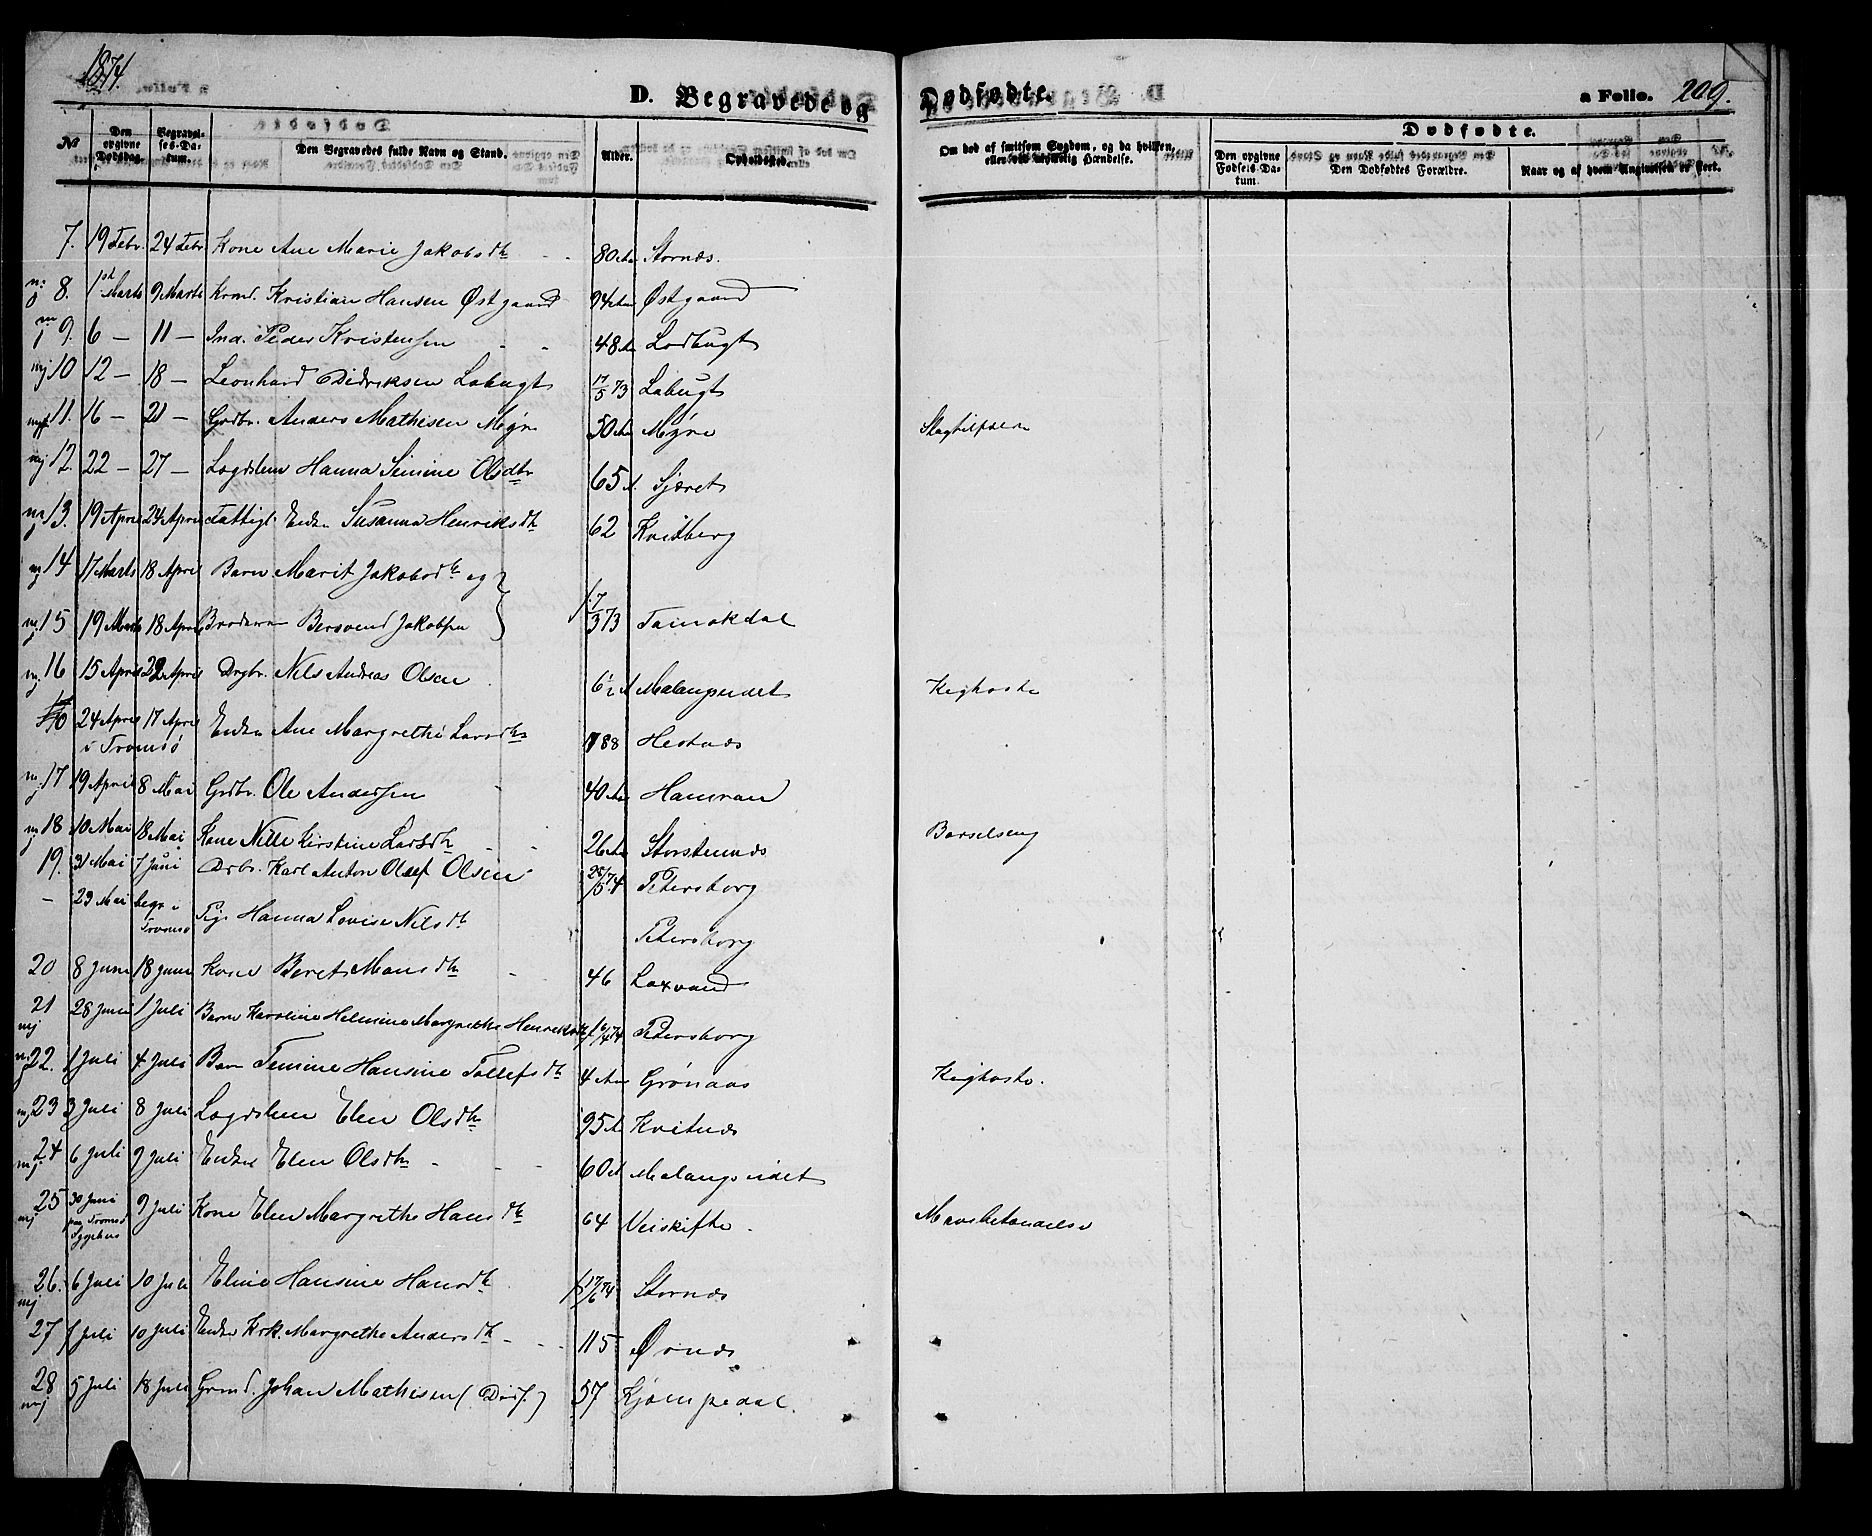 1874.
D. Begravede og Dødfødte.
a Folio. 209.
No
Den opgivne Dødsdag.
Begravelses-Datum.
Den Begravedes fulde Navn og Stand.
Alder.
Opholdssted.
Om død af smitsom Sygdom, og da hvilken, eller ved ulykkelig Hændelse.
Dødfødte.
Den opgivne Fødsels-Datum.
Den Dødfødtes Forældre.
Naar og af hvem Angivelsen er skeet.
7. 19 Febr. 24 Febr Kone Ane Marie Jakobsdtr 80 Aar Stornæs.
8. 1st Marts 9 Marts Kmd. Kristian Hansen Østgaard 94 Aar Østgaard
9. 6 — 11 — Ind. Peder Kristensen 48 A Lodbugt
10 12 — 18 — Leonhard Didriksen Labugt 17/5 73 Labugt
11. 16 — 21 — Grdbr. Anders Mathisen Myre 50 Aar Myre Slagtilfælde
12. 22 — 27 — Lægdslem Hanna Simine Olsdtr 65 A. Sjæret
13. 19 April 24 April Fattigl. Enke Susanna Henriksdtr 62 Kvitberg
14 17 Marts 18 April Barn Marit Jakobsdtr og
15 19 Marts 18 April Broderen Bersvend Jakobsen 17/3 73 Tamokdal
16 15 April 22 April Drgbr. Nils Andreas Olsen 6 1/2 A Malangseidet Kighoste
24 April i Tromsø 17 April Enken Ane Margrethe Larsdtr 88 Hestnæs
17 19 April 8 Mai Grdbr. Ole Andersen 40 Aar Hamvan
18 10 Mai 18 Mai Kone Nille Kirstine Larsdtr 26 Aar Storstennæs Barselseng
19. 31 Mai 7 Juni Drbr. Karl Anton Olaf Olsen 28/5 74 Petersborg
- 23 Mai begr. i Tromsø Pige Hanna Lovise Nilsdtr Petersborg
20 8 Juni 18 Juni Kone Beret Mansdtr 46 Laxvand
21 28 Juni 1 Juli Barn Karoline Helmine Margrethe Henriksdtr 16/4 74 Petersborg
22. 1 Juli 4 Juli Barn Temine Hansine Tollefsdtr 4 Aar Grønaas Kighoste.
23 3 Juli 8 Juli Lægdslem Elen Olsdtr 95 A Kvitnæs
24 6 Juli 9 Juli Enken Elen Olsdtr 60 A Malangseidet
25 30 Juni paa Tromsø Sygehus 9 Juli Kone Elen Margrethe Hansdtr 64 Neiskifte. Mavebetændelse
26. 6 Juli 10 Juli Eline Hansine Hansdtr 17/6 74 Stornæs
27 7 Juli 10 Juli Enke Krk. Margrethe Andersdtr 115 Øvnæs
28 5 Juli 18 Juli Grmd. Johan Mathisen (Døvs.) 57 Kjempedal.